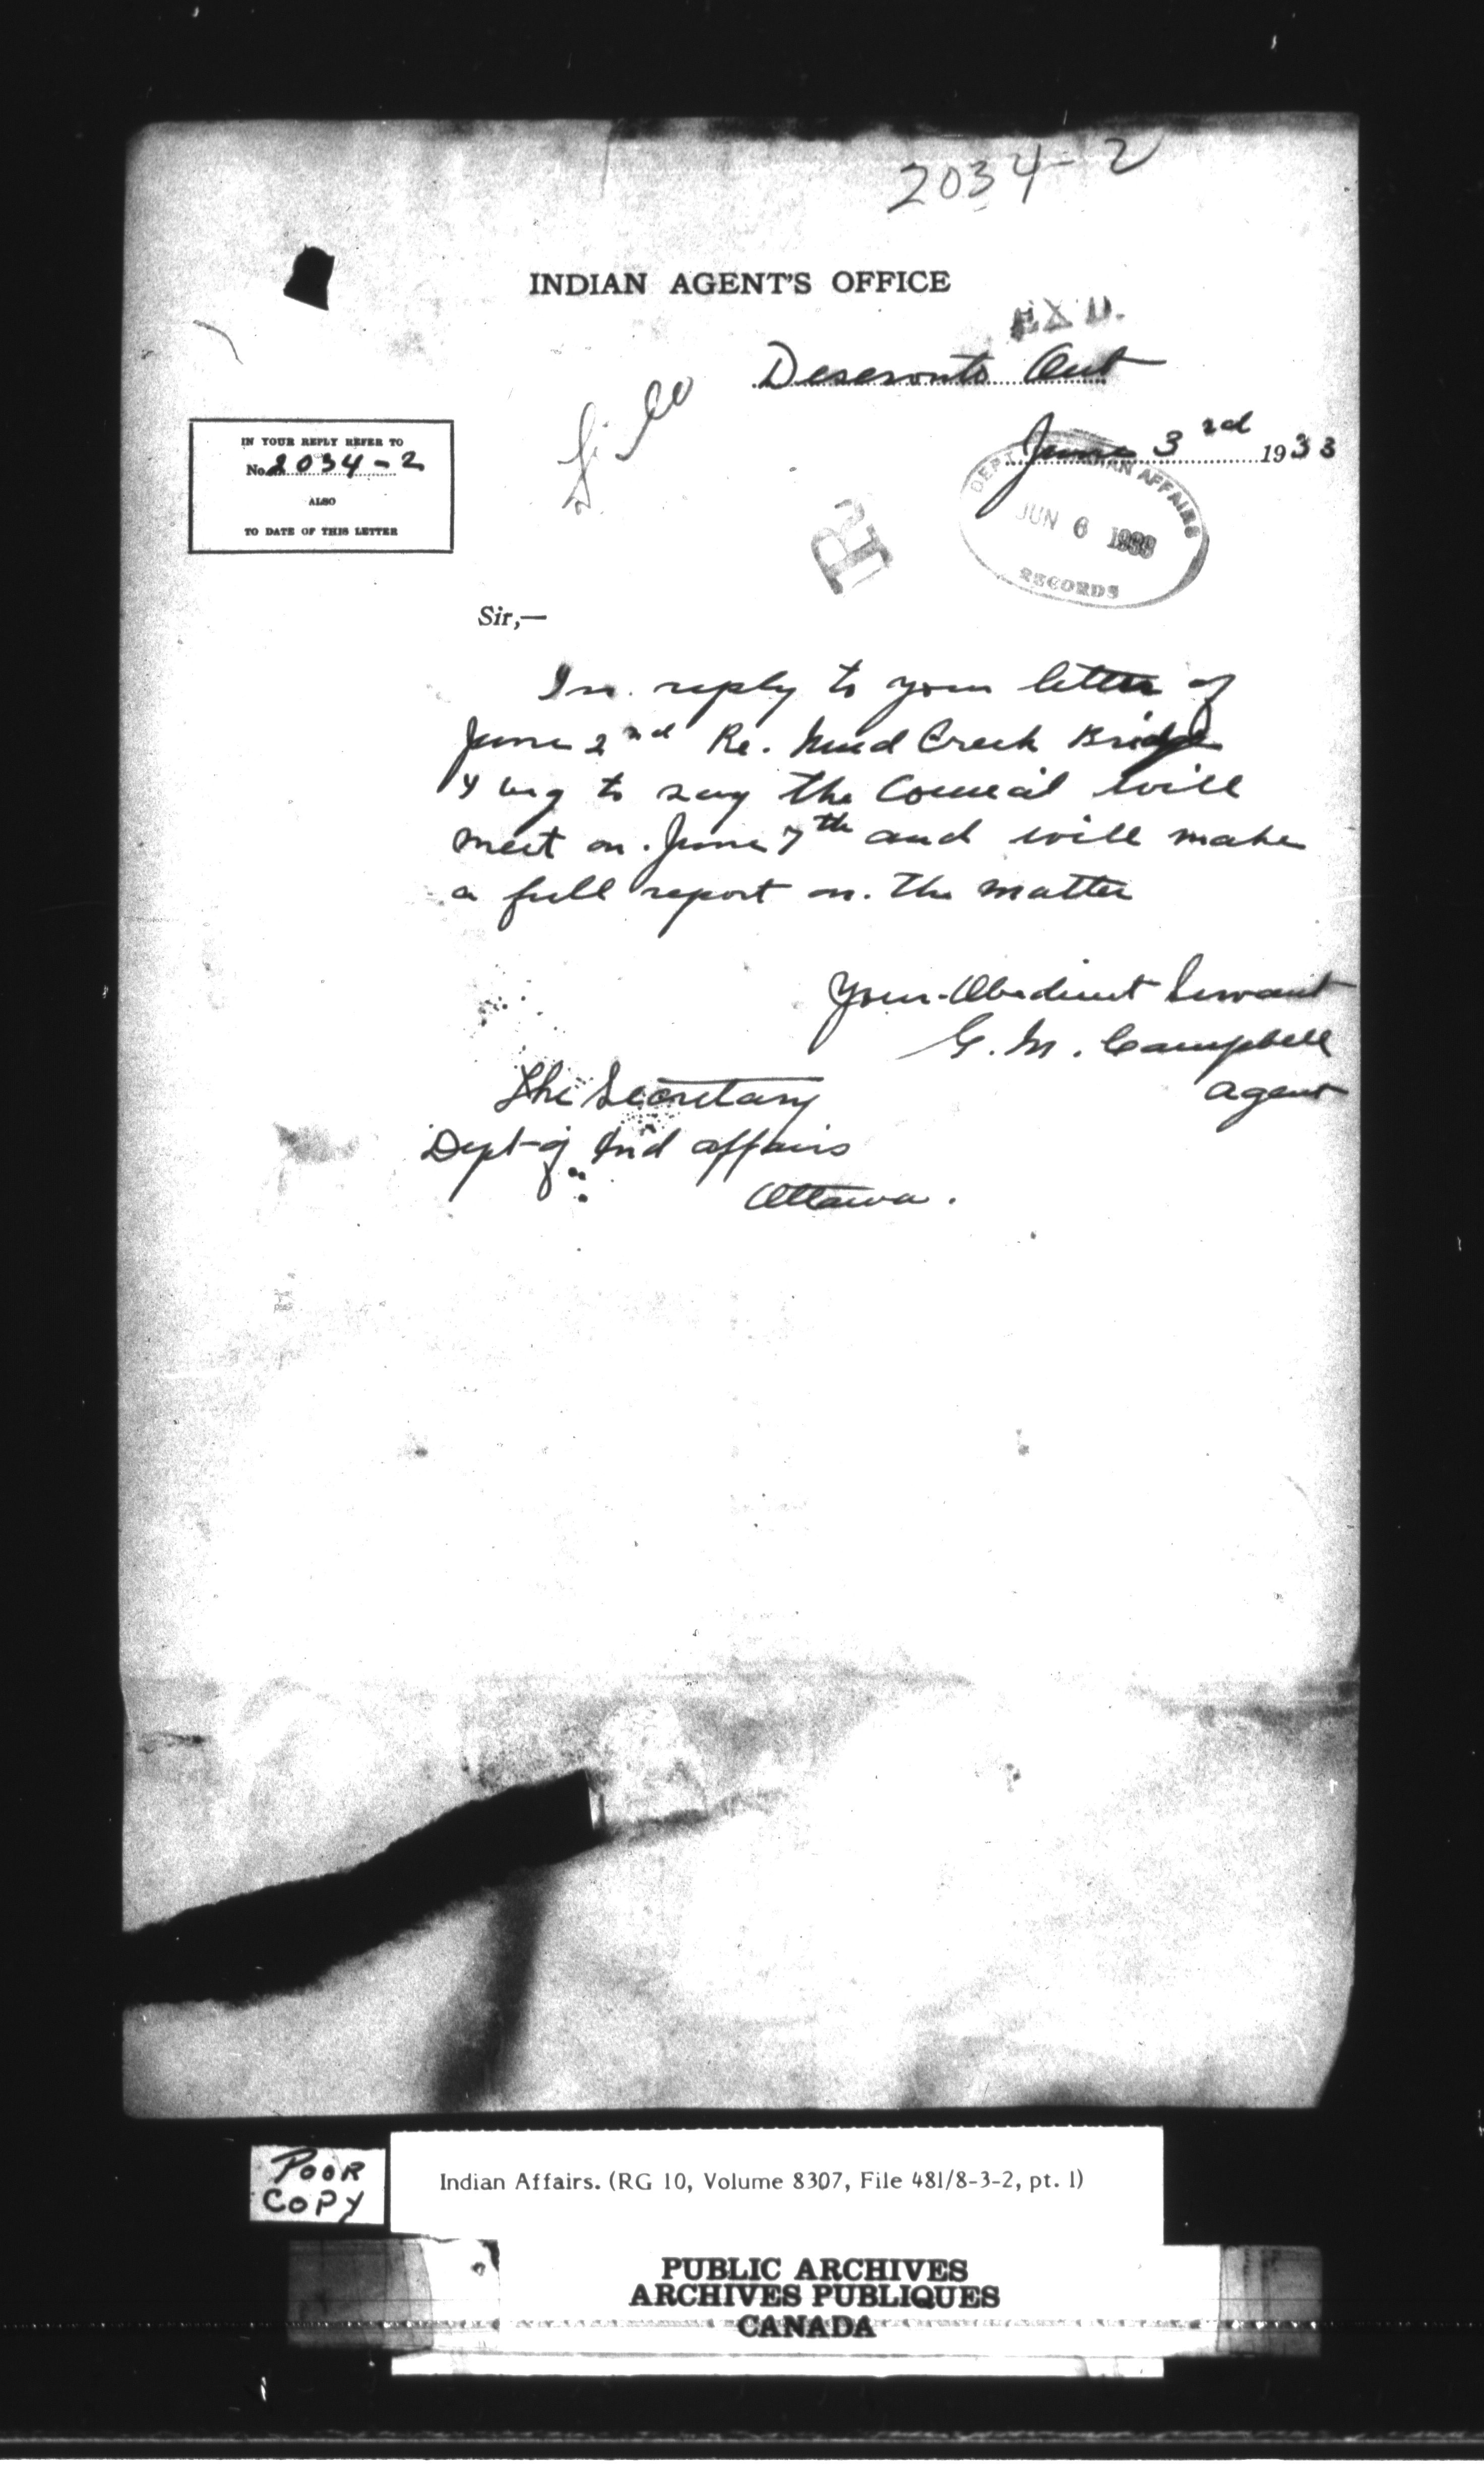 2034-2
INDIAN AGENT'S OFFICE
EXD.
Deseronto Ont
file
June 3rd 1933
IN YOUR REPLY REFER TO
No. 2034-2
ALSO
TO DATE OF THIS LETTER
DEPT. INDIAN AFFAIRS
JUN 6 1933
RECORDS
R
Sir,—
In reply to your letter of
June 2nd Re. Mud Creek Bridge
I beg to say the Council will
meet on. June 7th and will make
a full report on. the matter
Your Obedient Servant
G. M. Campbell
Agent
The Secretary
Dept of Ind affairs
Ottawa.
POOR
COPY
Indian Affairs. (RG 10, Volume 8307, File 481/8-3-2, pt. 1)
PUBLIC ARCHIVES
ARCHIVES PUBLIQUES
CANADA